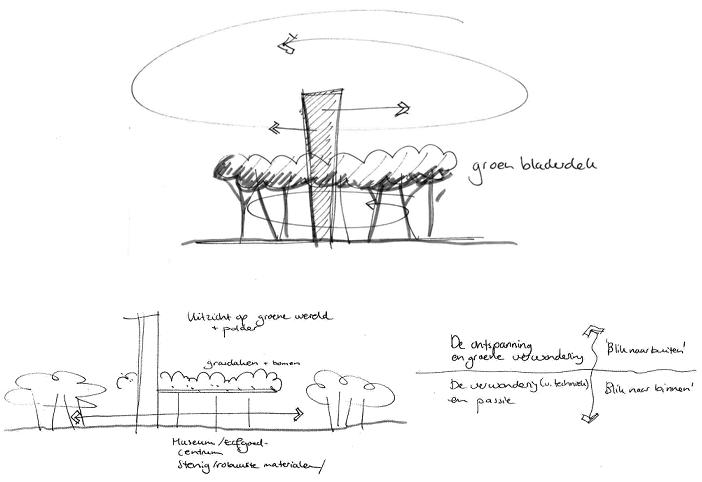 groen bladerdek
Uitzicht op groene wereld
+ polder
grasdaken + bomen
Museum/Erfgoed-
centrum
Stenig/robuuste materialen/
De ontspanning
en groene verwondering
'Blik naar buiten'
De verwondering (v. techniek)
en passie
'Blik naar binnen'